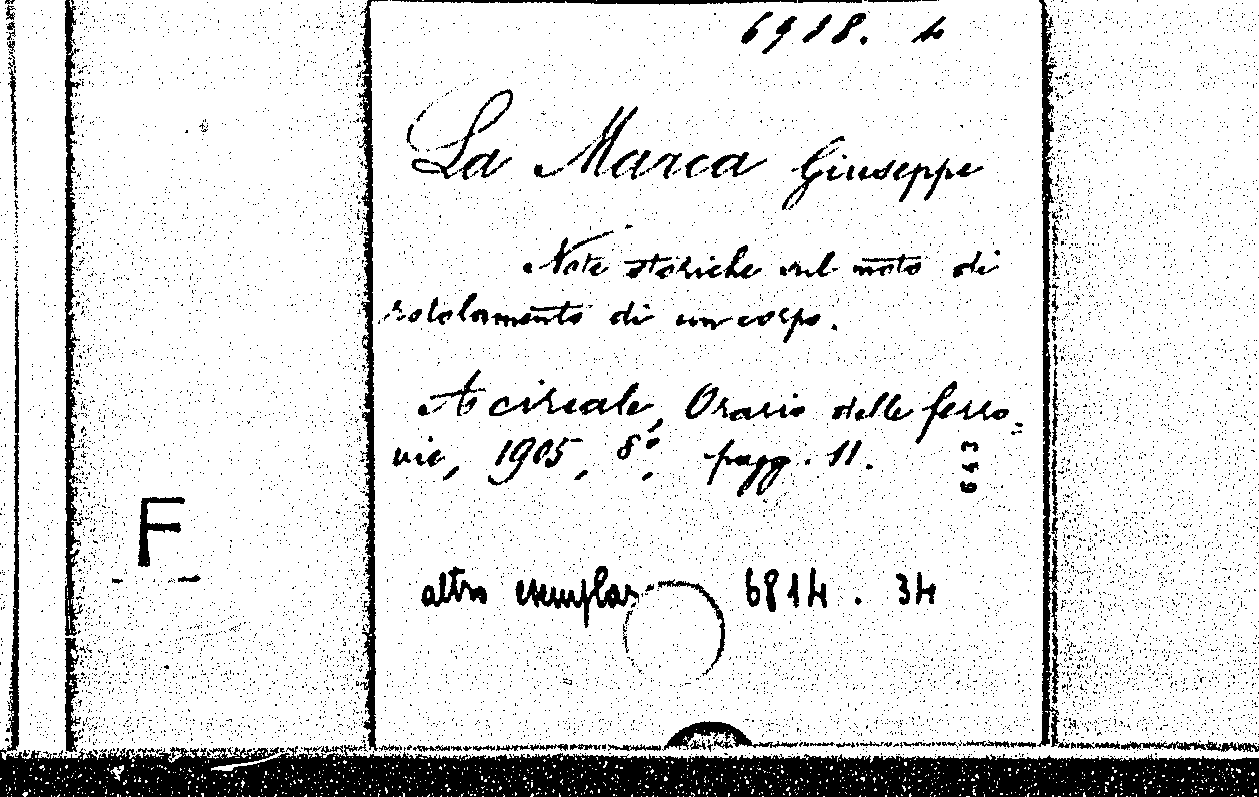 6988. 4
La Marca Giuseppe
Note storiche sul moto di
rotolamento di un corpo.
Acireale, Orario delle ferro=
vie, 1905, 8°, pagg. 11.
643
F
altro esemplar 6814 . 34